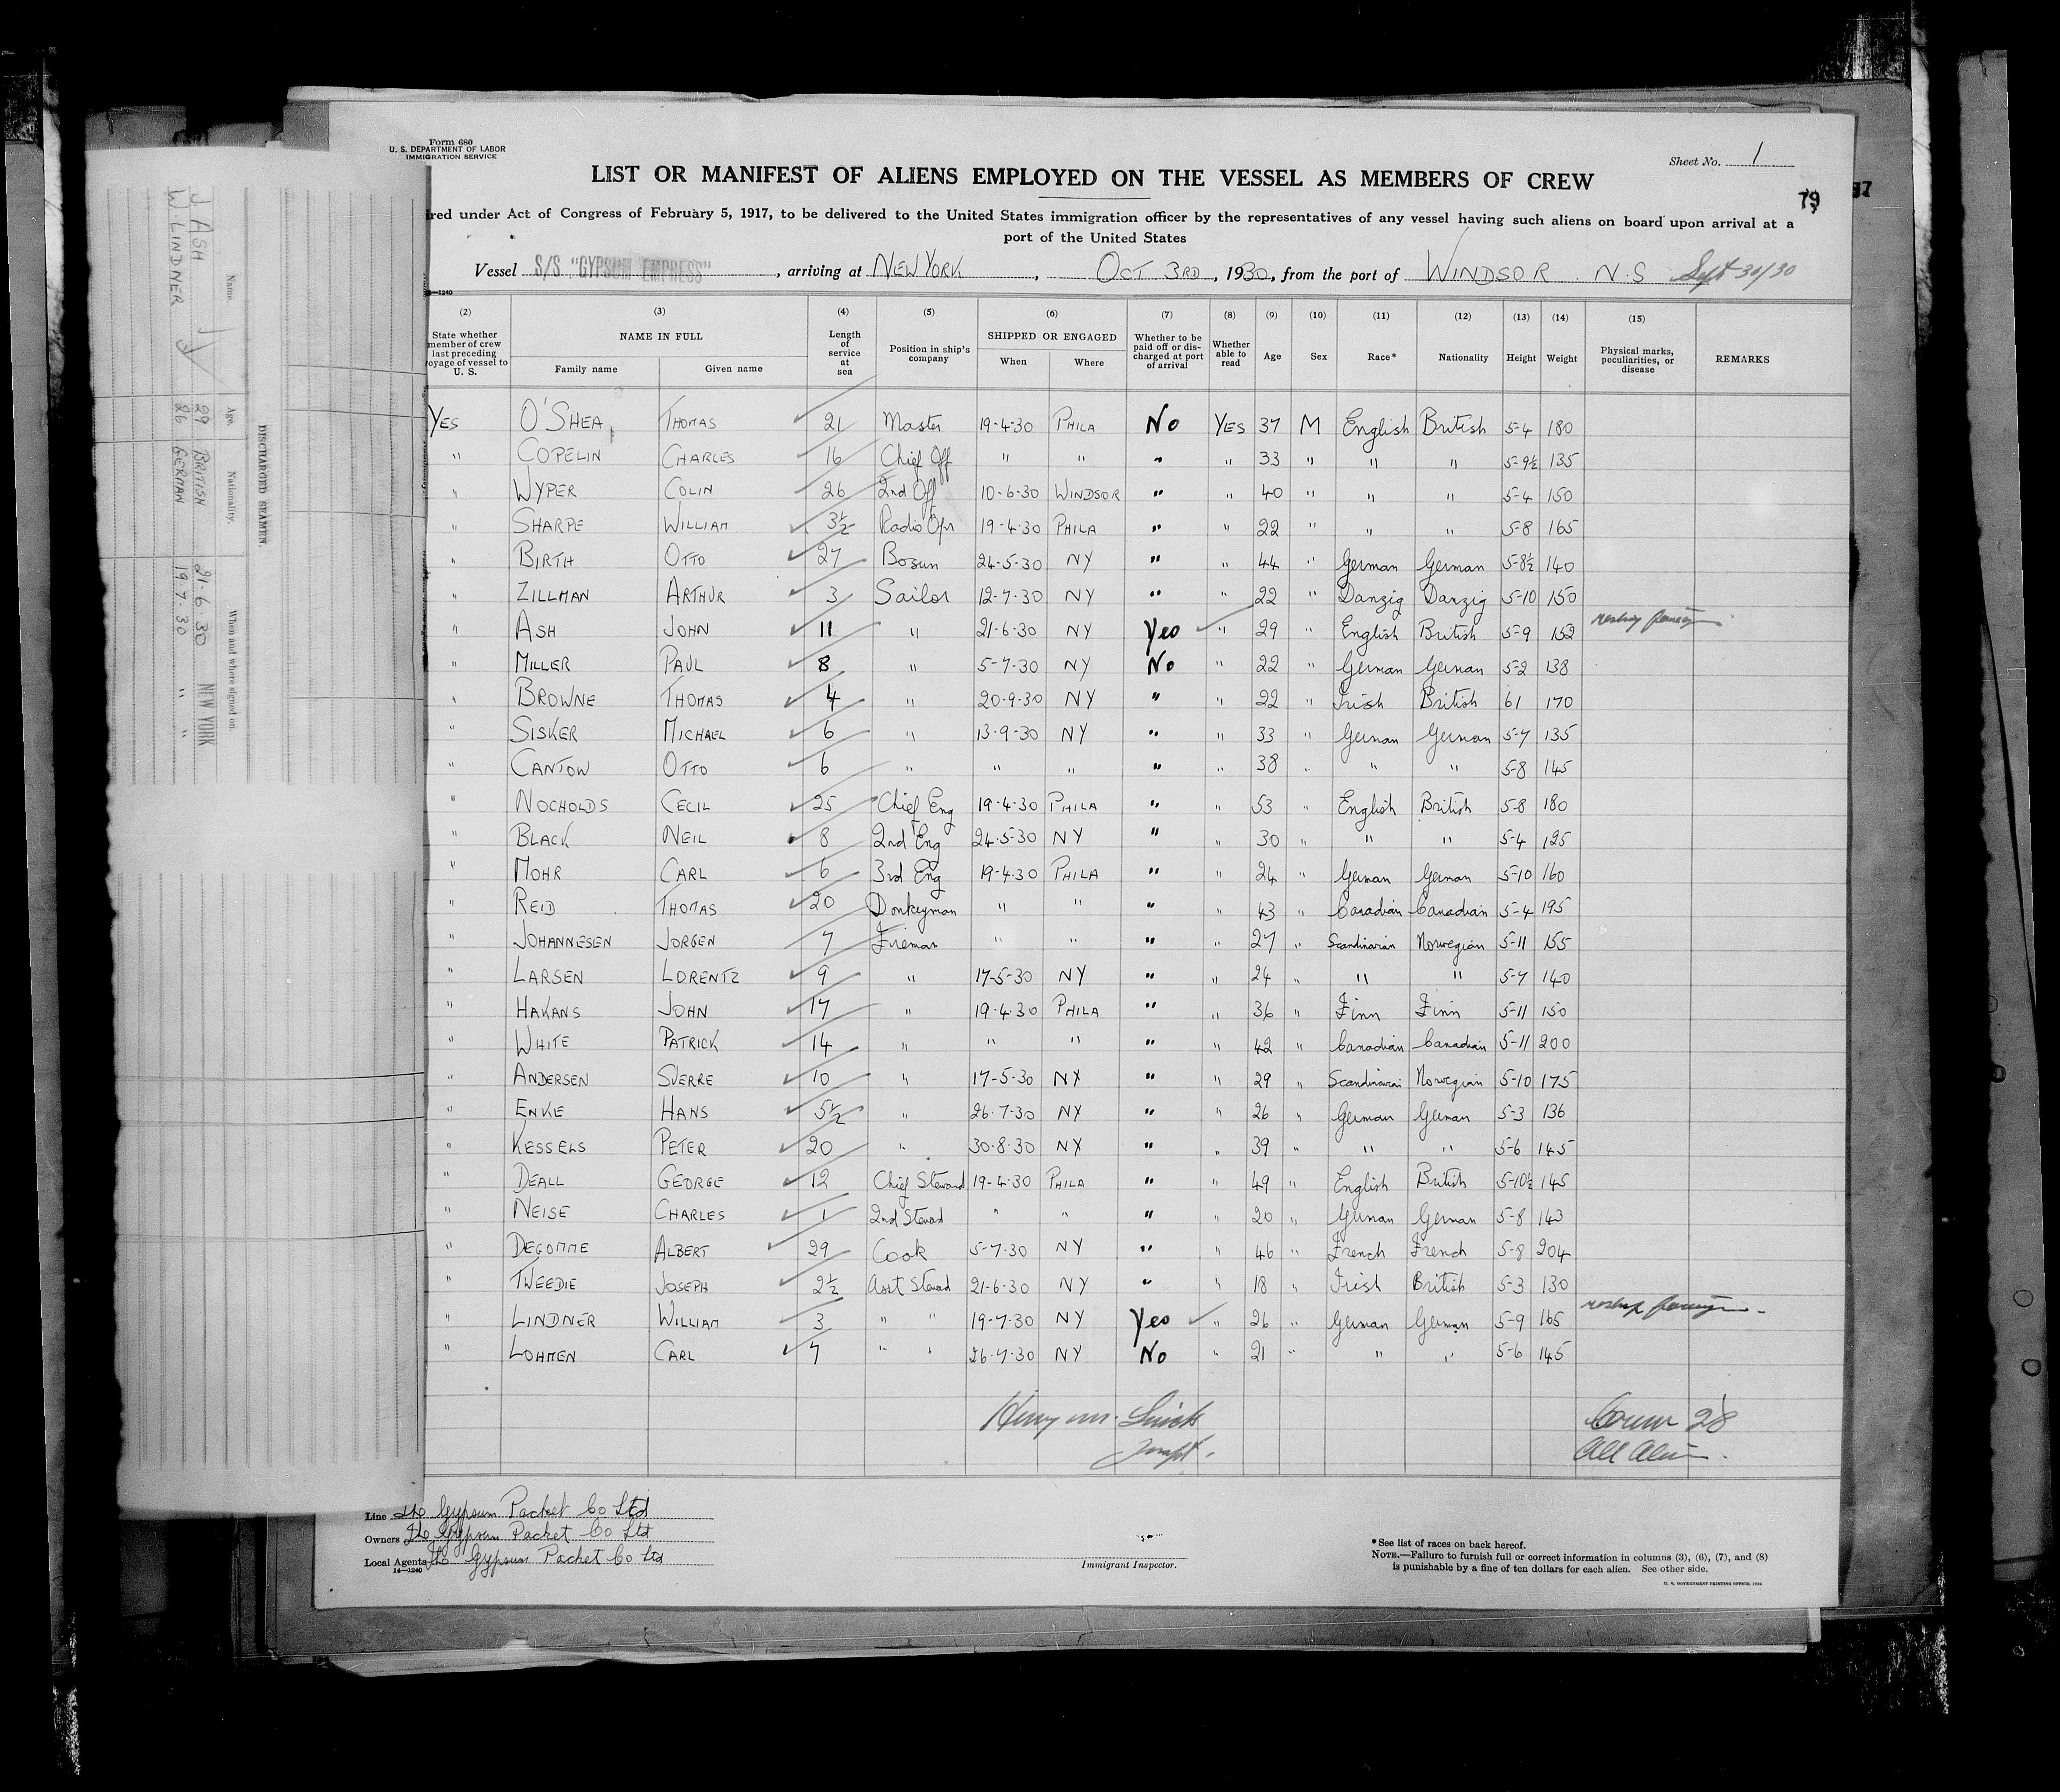 Form 680
U. S. DEPARTMENT OF LABOR
IMMIGRATION SERVICE
Sheet No. 1
LIST OR MANIFEST OF ALIENS EMPLOYED ON THE VESSEL AS MEMBERS OF CREW
79
37
red under Act of Congress of February 5, 1917, to be delivered to the United States immigration officer by the representatives of any vessel having such aliens on board upon arrival at a
port of the United States
Vessel S/S "GYPSUM EMPRESS", arriving at NEW YORK, OCT 3RD, 1930, from the port of WINDSOR N.S Sept 30/30
14—1240
(2) (3) (4) (5) (6) (7) (8) (9) (10) (11) (12) (13) (14) (15)
State whether member of crew last preceding voyage of vessel to U. S. NAME IN FULL Family name Given name Length of service at sea Position in ship's company SHIPPED OR ENGAGED When Where Whether to be paid off or discharged at port of arrival Whether able to read Age Sex Race* Nationality Height Weight Physical marks, peculiarities, or disease REMARKS
YES O'SHEA THOMAS 21 Master 19-4-30 PHILA No YES 37 M English British 5-4 180
" COPELIN CHARLES 16 Chief Off " " " " 33 " " " 5-9½ 135
" WYPER COLIN 26 2nd Off 10-6-30 WINDSOR " " 40 " " " 5-4 150
" SHARPE WILLIAM 3½ Radio Opr 19-4-30 PHILA " " 22 " " " 5-8 165
" BIRTH OTTO 27 Bosun 24-5-30 NY " " 44 " German German 5-8½ 140
" ZILLMAN ARTHUR 3 Sailor 12-7-30 NY " " 22 " Danzig Danzig 5-10 150
" ASH JOHN 11 " 21-6-30 NY Yes " 29 " English British 5-9 152
" MILLER PAUL 8 " 5-7-30 NY No " 22 " German German 5-2 138
" BROWNE THOMAS 4 " 20-9-30 NY " " 22 " Irish British 61 170
" SISKER MICHAEL 6 " 13-9-30 NY " " 33 " German German 5-7 135
" CANTOW OTTO 6 " " " " " 38 " " " 5-8 145
" NOCHOLDS CECIL 25 Chief Eng 19-4-30 PHILA " " 53 " English British 5-8 180
" BLACK NEIL 8 2nd Eng 24-5-30 NY " " 30 " " " 5-4 125
" MOHR CARL 6 3rd Eng 19-4-30 PHILA " " 24 " German German 5-10 160
" REID THOMAS 20 Donkeyman " " " " 43 " Canadian Canadian 5-4 195
" JOHANNESEN JORGEN 7 Fireman " " " " 27 " Scandinavian Norwegian 5-11 155
" LARSEN LORENTZ 9 " 17-5-30 NY " " 24 " " " 5-7 140
" HAKANS JOHN 17 " 19-4-30 PHILA " " 36 " Finn Finn 5-11 150
" WHITE PATRICK 14 " " " " " 42 " Canadian Canadian 5-11 200
" ANDERSEN SVERRE 10 " 17-5-30 NY " " 29 " Scandinavian Norwegian 5-10 175
" ENKE HANS 5½ " 26-7-30 NY " " 26 " German German 5-3 136
" KESSELS PETER 20 " 30-8-30 NY " " 39 " " " 5-6 145
" DEALL GEORGE 12 Chief Steward 19-4-30 PHILA " " 49 " English British 5-10½ 145
" NEISE CHARLES 1 2nd Steward " " " " 20 " German German 5-8 143
" DEGOMME ALBERT 29 Cook 5-7-30 NY " " 46 " French French 5-8 204
" TWEEDIE JOSEPH 2½ Asst Steward 21-6-30 NY " " 18 " Irish British 5-3 130
" LINDNER WILLIAM 3 " " 19-7-30 NY Yes " 26 " German German 5-9 165
" LOHMEN CARL 7 " " 26-7-30 NY No " 21 " " " 5-6 145
28
All
Line The Gypsum Packet Co Ltd
Owners The Gypsum Packet Co Ltd
Local Agents The Gypsum Packet Co Ltd
14—1240
Immigrant Inspector.
*See list of races on back hereof.
NOTE.—Failure to furnish full or correct information in columns (3), (6), (7), and (8)
is punishable by a fine of ten dollars for each alien. See other side.
U. S. GOVERNMENT PRINTING OFFICE:
DISCHARGED SEAMEN.
Name. Age. Nationality. When and where signed on.
J ASH 29 BRITISH 21-6-30 NEW YORK
W LINDNER 26 GERMAN 19-7-30 " "